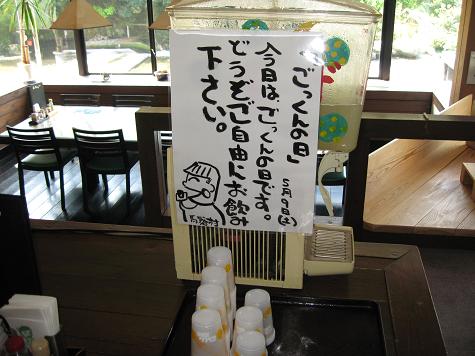 「ごっくんの日」
5月9日(土)
今日は、ごっくんの日です。
どうぞご自由にお飲み
下さい。